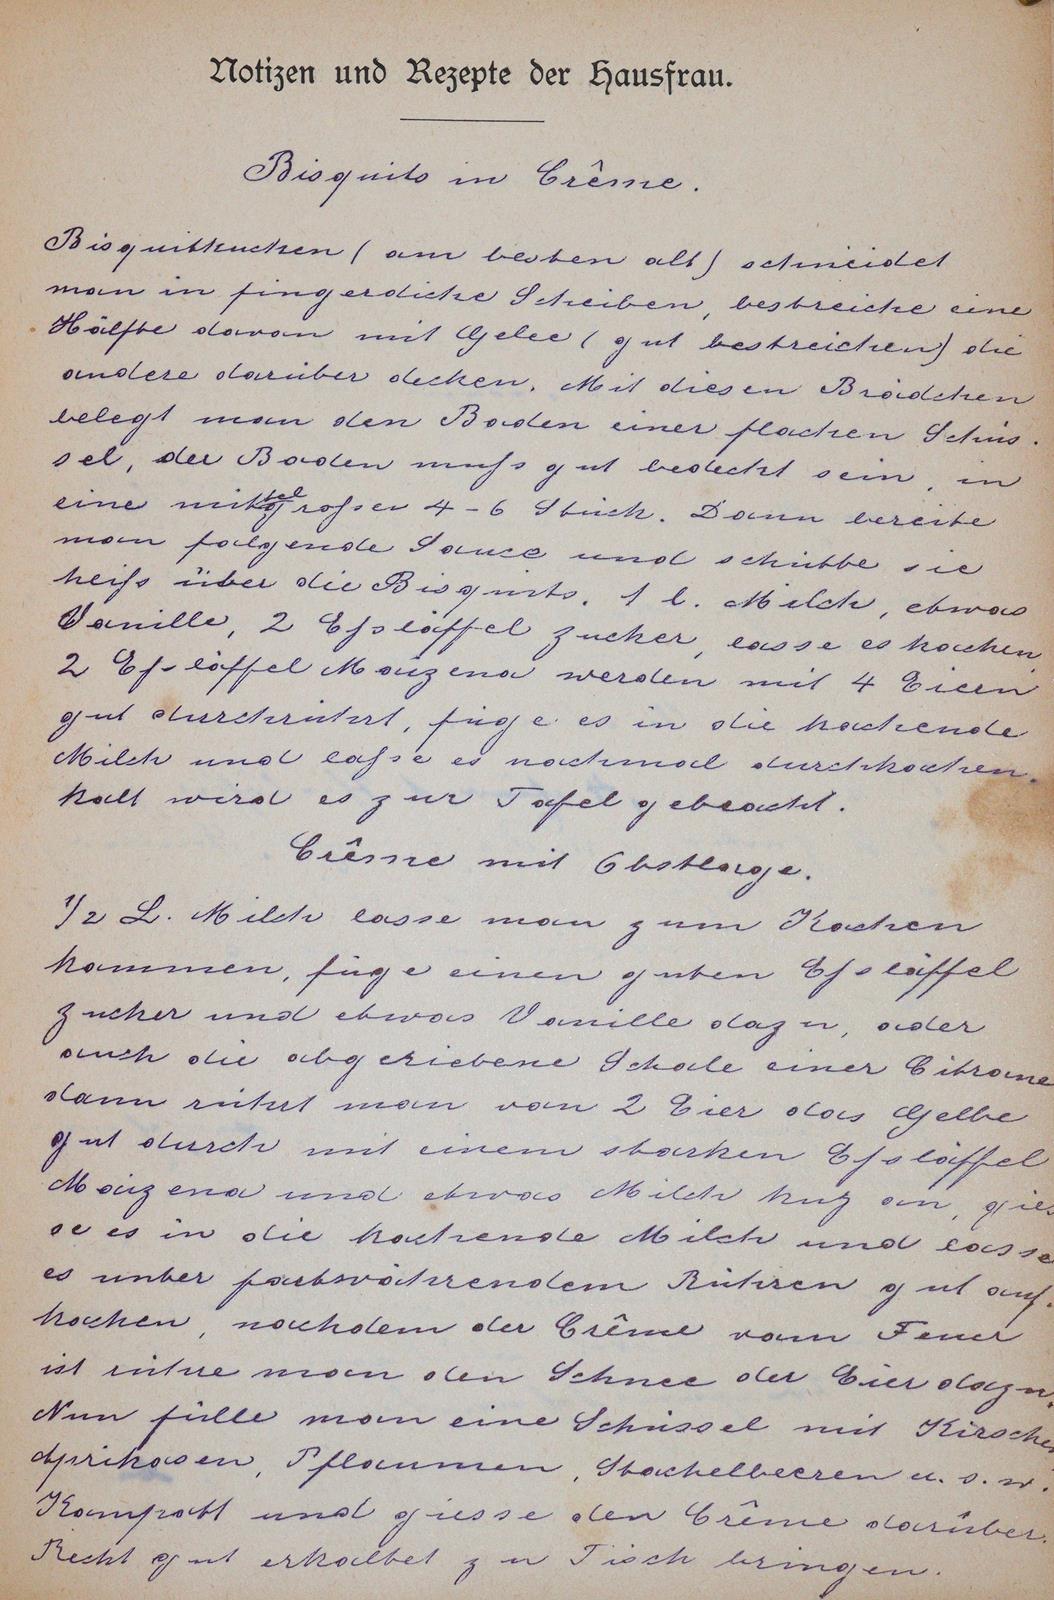 Notizen und Rezepte der Hausfrau.
Bisquits in Crême.
Bisquitkuchen (am besten alt) schneidet
man in fingerdicke Scheiben, bestreiche eine
Hälfte davon mit Gelee (gut bestreichen) die
andere darüber decken. Mit diesen Brödchen
belegt man den Boden einer flachen Schüs-
sel, der Boden muſs gut bedeckt sein, in
eine mittelgroſser 4-6 Stück. Dann bereite
man folgende Sauce und schütte sie
heiſs über die Bisquits. 1 l. Milch, etwas
Vanille, 2 Eſslöffel Zucker, lasse es kochen,
2 Eſslöffel Maizena werden mit 4 Eiern
gut durchrührt, füge es in die kochende
Milch und laſse es nochmal durchkochen.
Kalt wird es zur Tafel gebracht.
Crême mit Obstlage.
1/2 L. Milch lasse man zum Kochen
kommen, füge einen guten Eſslöffel
Zucker und etwas Vanille dazu, oder
auch die abgeriebene Schale einer Citrone
dann rührt man von 2 Eier das Gelbe
gut durch mit einem starken Eſslöffel
Maizena und etwas Milch kuz an, gies
se es in die kochende Milch und lasse
es unter fortwährendem Rühren gut auf-
kochen, nachdem der Crême vom Feuer
ist rühre man den Schnee der Eier dazu.
Nun fülle man eine Schüssel mit Kirschen
Aprikosen, Pflaumen, Stachelbeeren u. s. w.
Kompott und giesse den Crême darüber.
Recht gut erkaltet zu Tisch bringen.